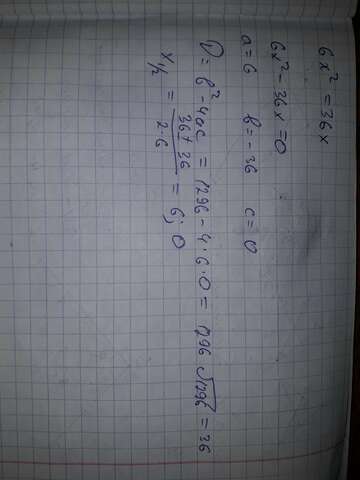 6x² = 36x
6x² - 36x = 0
a = 6 b = -36 c = 0
D = b² - 4ac = 1296 - 4·6·0 = 1296 √1296 = 36
x₁/₂ = (36 ± 36)/(2·6) = 6; 0